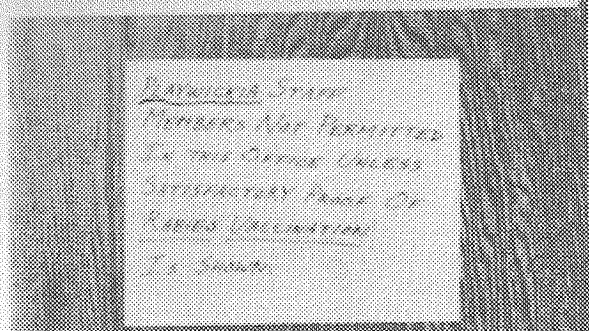 PLAYWICKIAN STAFF
MEMBERS NOT PERMITTED
IN THIS OFFICE UNLESS
SATISFACTORY PROOF OF
RABIES VACCINATION
IS SHOWN.